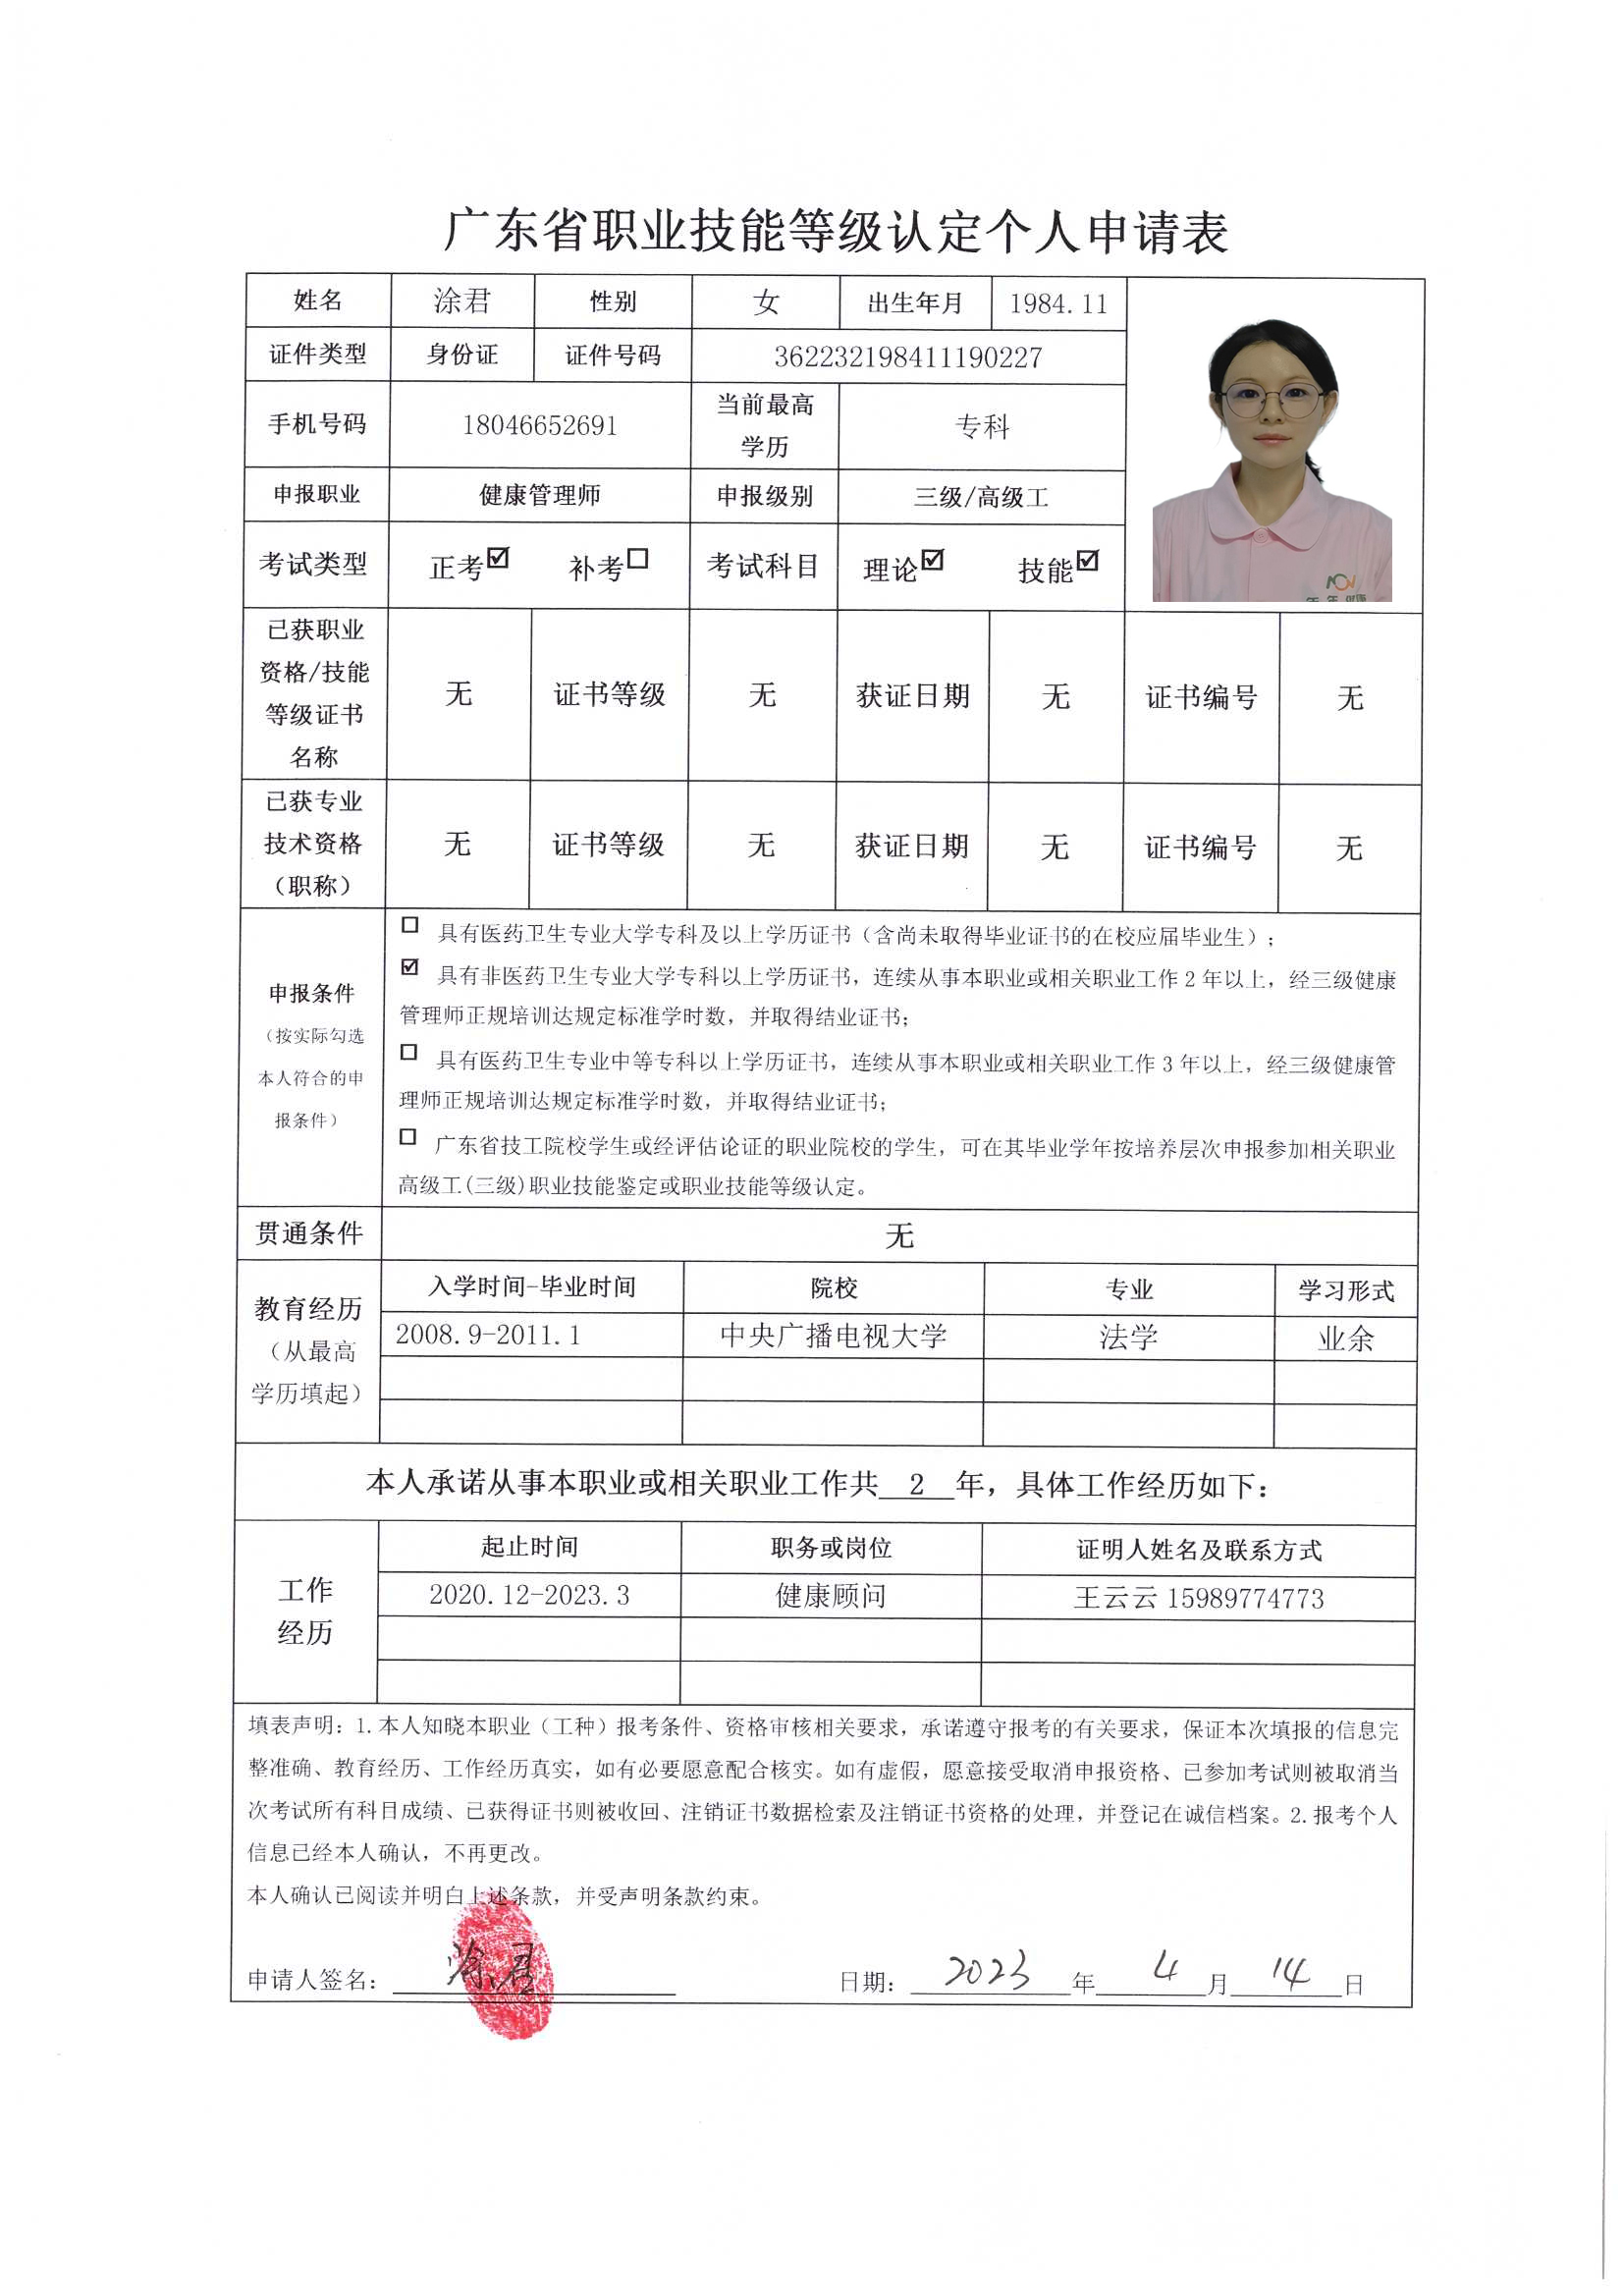 广东省职业技能等级认定个人申请表
姓名 涂君 性别 女 出生年月 1984.11
证件类型 身份证 证件号码 362232198411190227
手机号码 18046652691 当前最高学历 专科
申报职业 健康管理师 申报级别 三级/高级工
考试类型 正考☑ 补考☐ 考试科目 理论☑ 技能☑
已获职业资格/技能等级证书名称 无 证书等级 无 获证日期 无 证书编号 无
已获专业技术资格（职称） 无 证书等级 无 获证日期 无 证书编号 无
申报条件
（按实际勾选本人符合的申报条件）
☐ 具有医药卫生专业大学专科及以上学历证书（含尚未取得毕业证书的在校应届毕业生）；
☑ 具有非医药卫生专业大学专科以上学历证书，连续从事本职业或相关职业工作 2 年以上，经三级健康
管理师正规培训达规定标准学时数，并取得结业证书；
☐ 具有医药卫生专业中等专科以上学历证书，连续从事本职业或相关职业工作 3 年以上，经三级健康管
理师正规培训达规定标准学时数，并取得结业证书；
☐ 广东省技工院校学生或经评估论证的职业院校的学生，可在其毕业学年按培养层次申报参加相关职业
高级工(三级)职业技能鉴定或职业技能等级认定。
贯通条件 无
教育经历（从最高学历填起）
入学时间-毕业时间 院校 专业 学习形式
2008.9-2011.1 中央广播电视大学 法学 业余
本人承诺从事本职业或相关职业工作共 2 年，具体工作经历如下：
工作经历
起止时间 职务或岗位 证明人姓名及联系方式
2020.12-2023.3 健康顾问 王云云 15989774773
填表声明：1.本人知晓本职业（工种）报考条件、资格审核相关要求，承诺遵守报考的有关要求，保证本次填报的信息完
整准确、教育经历、工作经历真实，如有必要愿意配合核实。如有虚假，愿意接受取消申报资格、已参加考试则被取消当
次考试所有科目成绩、已获得证书则被收回、注销证书数据检索及注销证书资格的处理，并登记在诚信档案。2.报考个人
信息已经本人确认，不再更改。
本人确认已阅读并明白上述条款，并受声明条款约束。
申请人签名： 涂君 日期： 2023 年 4 月 14 日